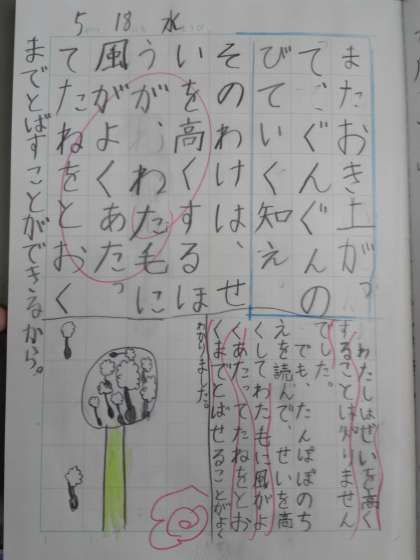 5 18 水
またおき上がっ
て、ぐんぐんの
びていく知え
そのわけは、せ
いを高くするほ
うが、わた毛に
風がよくあたっ
てたねをとおく
までとばすことができるから。
わたしはせいを高く
することは知りません
でした。
でも、たんぽぽのち
えを読んで、せいを高
くしてわたもに風がよ
くあたってたねをとお
くまでとばせることがよく
わかりました。